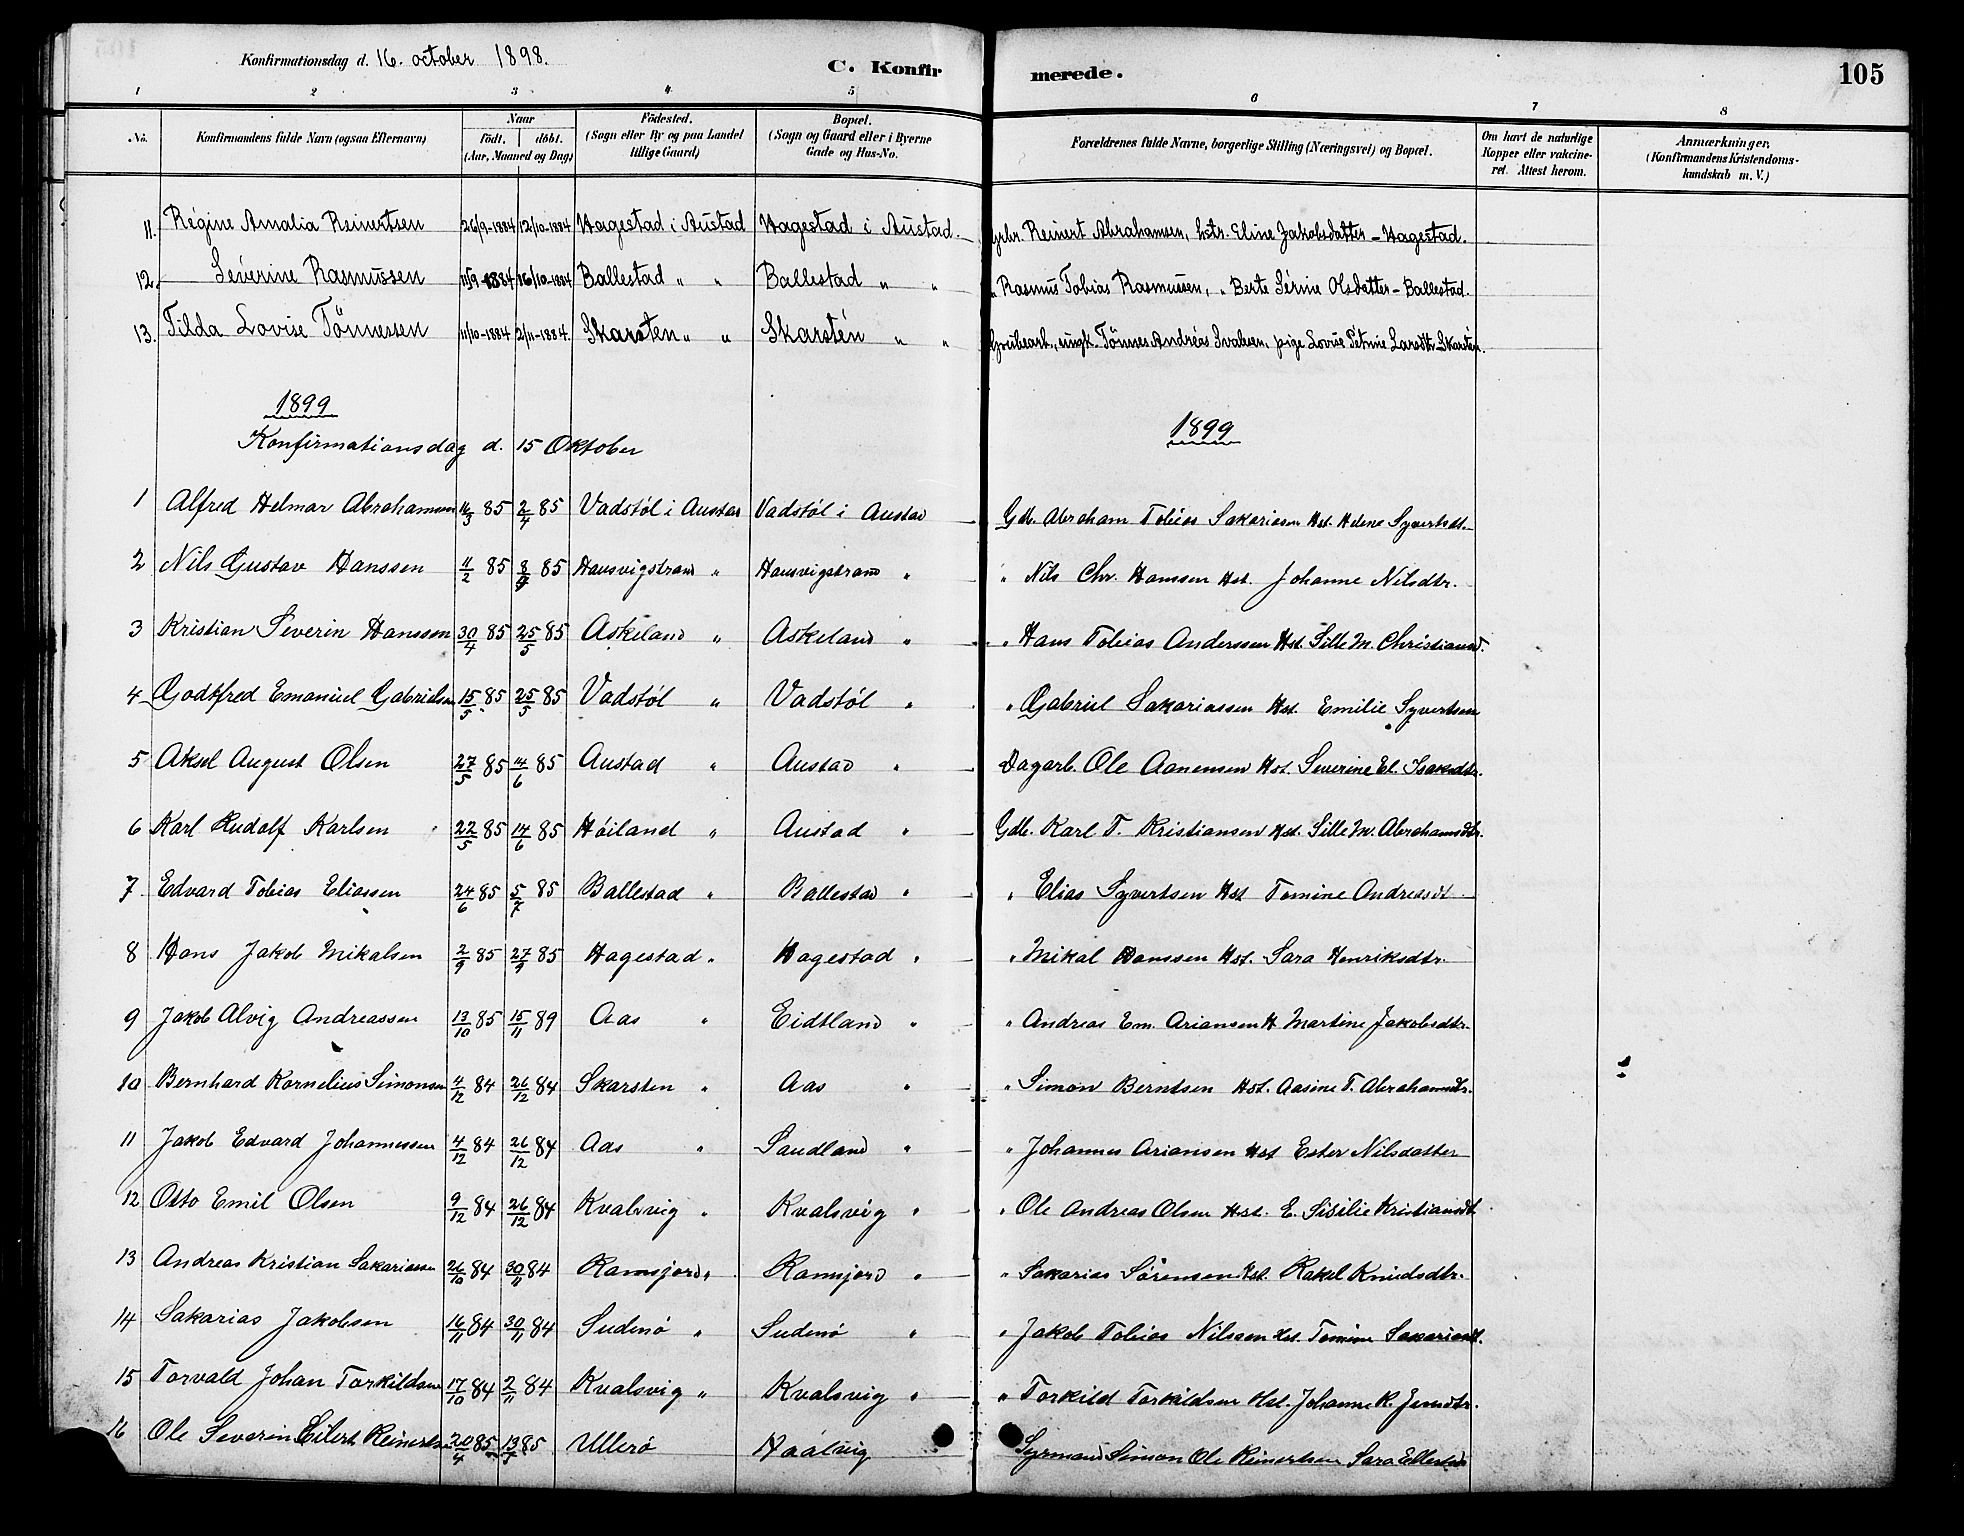 Konfirmationsdag d. 16. october 1898. C. Konfirmerede. 105
1 2 3 4 5 6 7 8
No. Konfirmandens fulde Navn (ogsaa Efternavn) Naar Födt. döbt. (Aar, Maaned og Dag) Födested. (Sogn eller By og paa Landet tillige Gaard) Bopæl. (Sogn og Gaard eller i Byerne Gade og Hus-No. Forældrenes fulde Navne, borgerlige Stilling (Næringsvei) og Bopæl. Om havt de naturlige Kopper eller vakcineret. Attest herom. Anmærkninger, (Konfirmandens Kristendomskundskab m. V.)
11. Régine Amalia Reinertsen 26/9-1884 12/10-1884 Hagestad i Austad Hagestad i Austad. Grbr. Reinert Abrahamsen, hstr. Eline Jakobsdatter - Hagestad.
12. Sévérine Rasmussen 11/9-1884 16/10-1884 Ballestad " " Ballestad " " " Rasmus Tobias Rasmussen, " Berte Sérine Olsdatter - Ballestad.
13. Tilda Lovise Tönnessen 11/10-1884 2/11-1884. Skarsten " " Skarstén " " Grubearb., ungk. Tönnes Andréas Svalesen, pige Lovise Petrine Larsdtr. Skarstén.
1899 1899
Konfirmationsdag d. 15 Oktober
1 Alfred Helmar Abrahamsen 16/3 85 2/4 85 Vadstøl i Austad Vadstøl i Austad Gdb. Abraham Tobias Sakariasen Hst. Helene Syvertsdt.
2 Nils Gustav Hanssen 11/2 85 8/4 85 Hausvigstrand " Hausvigstrand " " Nils Chr. Hanssen Hst. Johanne Nilsdtr.
3 Kristian Severin Hanssen 30/4 85 25/5 85 Askeland " Askeland " " Hans Tobias Anderssen Hst. Sille M. Christiansd.
4 Godtfred Emanuel Gabrielsen 15/5 85 25/5 85 Vadstøl " Vadstøl " " Gabriel Sakariassen Hst. Emilie Syvertsen
5 Aksel August Olsen 27/5 85 14/6 85 Austad " Austad " Dagarb. Ole Aanensen Hst. Severine El. Isaksdtr.
6 Karl Rudolf Karlsen 22/5 85 14/6 85 Høiland " Austad " Gdb. Karl T. Kristiansen Hst. Sille M. Abrahamsdtr.
7. Edvard Tobias Eliassen 24/6 85 5/7 85 Ballestad " Ballestad " " Elias Syvertsen Hst Tomine Andreasdt.
8 Hans Jakob Mikalsen 2/9 85 27/9 85 Hagestad " Hagestad " " Mikal Hanssen Hst. Sara Henriksdtr.
9 Jakob Alvig Andreassen 13/10 85 15/11 89 Aas " Eidtland " " Andreas Em. Ariansen H Martine Jakobsdtr.
10 Bernhard Kornelius Simonsen 4/12 84 26/12 84 Skarsten " Aas " " Simon Berntsen Hst. Aasine T. Abrahamsdtr.
11 Jakob Edvard Johannessen 4/12 84 26/12 84 Aas " Saudland " " Johannes Ariansen Hst Ester Nilsdatter
12 Otto Emil Olsen 9/12 84 26/12 84 Kvalsvig " Kvalsvig " " Ole Andreas Olsen Hst. E. Sisilie Kristiansdt.
13 Andreas Kristian Sakariassen 26/10 84 30/11 84 Ramsjord " Ramsjord " " Sakarias Sørensen Hst. Rakel Knudsdtr.
14 Sakarias Jakobsen 16/11 84 30/11 84 Sudenø " Sudenø " " Jakob Tobias Nilssen Hst. Tomine Sakariasdt.
15 Torvald Johan Torkildsen 17/10 84 2/11 84 Kvalsvig " Kvalsvig " " Torkild Torkildsen Hst. Johanne K. Jensdtr.
16 Ole Severin Eilert Reinertsen 20/4 85 13/5 85 Ullerø Haalvig Syrmand Simon Ole Reinertsen Sara